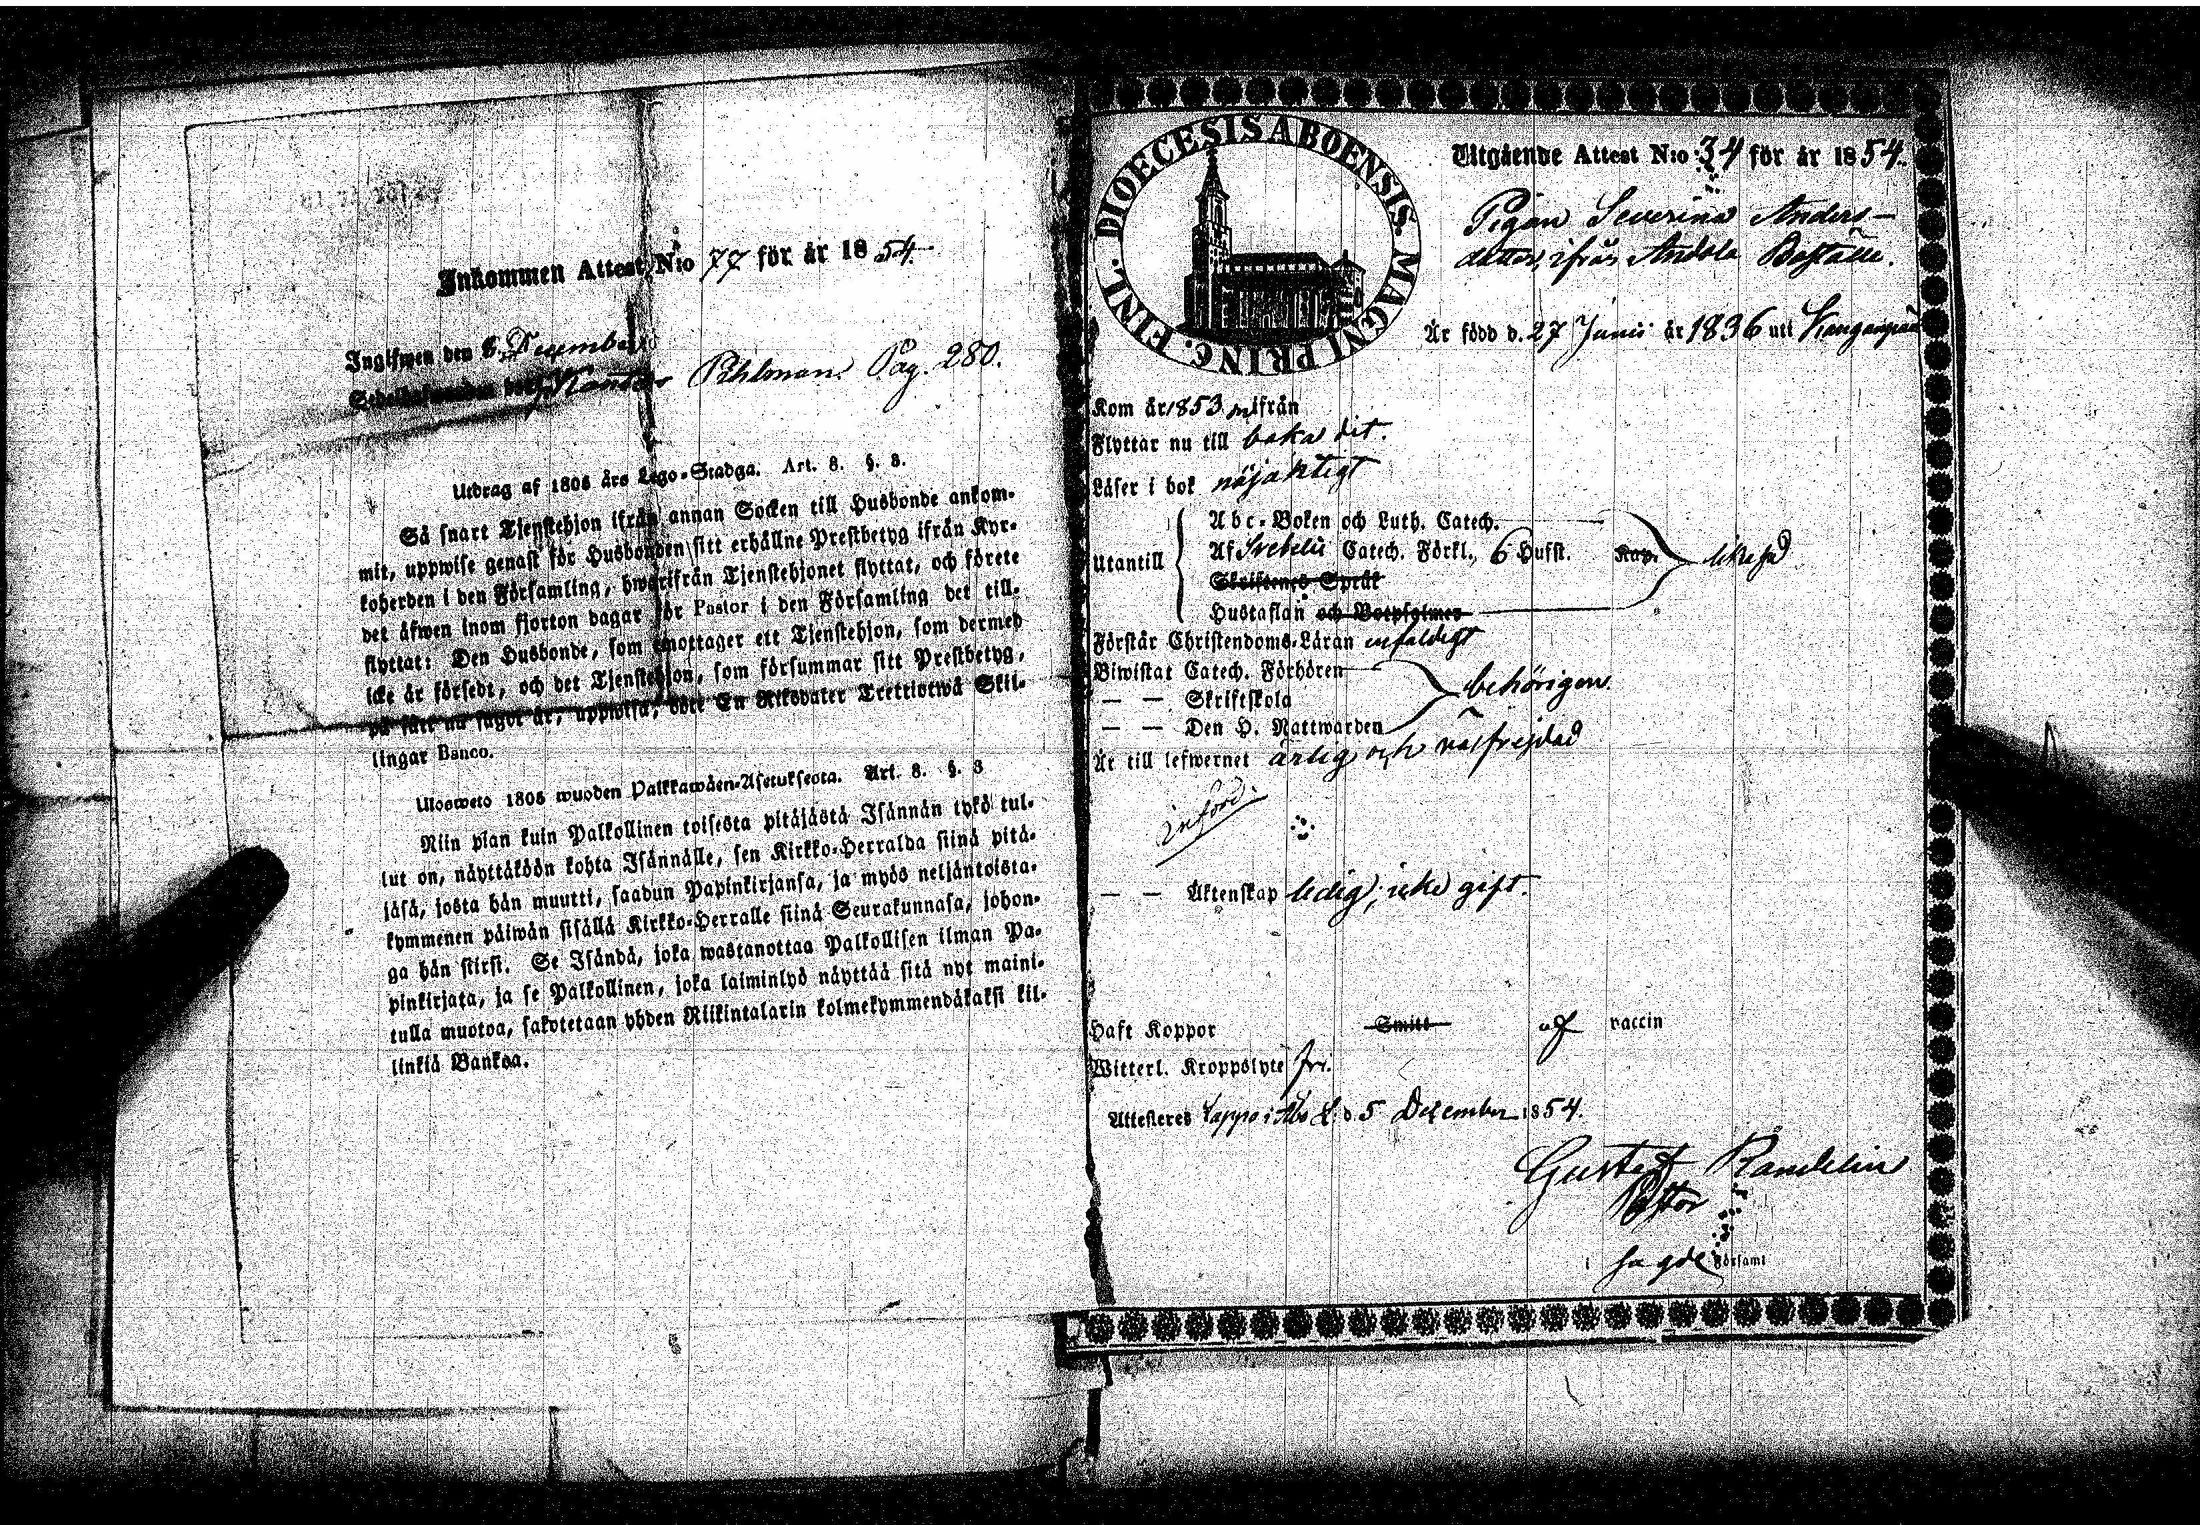 Inkommen Attest N:o 77 för år 1854.
Ingifwen den 8 December
Pihlman. Pag. 280.
Utdrag af 1805 års Lego-Stadga. Art. 8. §. 8.
Så snart Tjenstehjon ifrån annan Socken till Husbonde ankom-
mit, uppwise genast för Husbonden sitt erhållne Prestbetyg ifrån Kyr-
koherden i den Församling, hwarifrån Tjenstehjonet flyttat, och förete
det äfwen inom fjorton dagar för Pastor i den Församling det till-
flyttat: Den Husbonde, som emottager ett Tjenstehjon, som dermed
icke är försedt, och det Tjenstehjon, som försummar sitt Prestbetyg,
på sätt nu sagdt är, uppwisa, böte En Riksdaler Trettiotwå Skil-
lingar Banco.
Ulosweto 1805 wuoden Palkkawäen-Asetuksesta. Art. 8. §. 8
Niin pian kuin Palkollinen toisesta pitäjästä Isännän tykö tul-
lut on, näyttäköön kohta Isännälle, sen Kirkko-Herralda siinä pitä-
jäsä, josta hän muutti, saadun Papinkirjansa, ja myös neljäntoista-
kymmenen päiwän sisällä Kirkko-Herralle siinä Seurakunnasa, johon-
ga hän siirsi. Se Isändä, joka wastanottaa Palkollisen ilman Pa-
pinkirjata, ja se Palkollinen, joka laiminlyö näyttää sitä nyt maini-
tulla muotoa, sakotetaan yhden Riikintalarin kolmekymmendäkaksi kil-
linkiä Bankoa.
DIOECESIS ABOENSIS. MAGNI PRINC. FINL.
Utgående Attest N:o 34 för år 1854.
Pigan Severina Anders-
dotter, ifrån Andola Boställe.
Är född d. 27 Junii år 1836 uti Kangasniemi
Kom år 1853 ifrån
Flyttar nu till baka dit.
Läser i bok nöjaktigt
Utantill
Abc-Boken och Luth. Catech.
Af Svebelii Catech. Förkl., 6 Hufst. Kap. likaså
Skriftenes Språk
Hustaflan och Botpsalmer
Förstår Christendoms-Läran enfaldigt
Biwistat Catech. Förhören
— — Skriftskola behörigen.
— — Den H. Nattwarden
Är till lefwernet ärlig och välfrejdad
införd.
— — Äktenskap ledig, icke gift.
Haft Koppor Smitt af vaccin
Witterl. Kroppslyte fri.
Attesteres Lappo i Åbo L. d. 5 December 1854.
Gustaf Randelin
Pastor
i sagde Församl